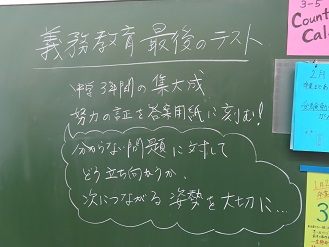 義務教育最後のテスト
中学3年間の集大成
努力の証を答案用紙に刻む!
分からない問題に対して
どう立ち向かうか、
次につながる姿勢を大切に…
3-5
Count
Cal
2月